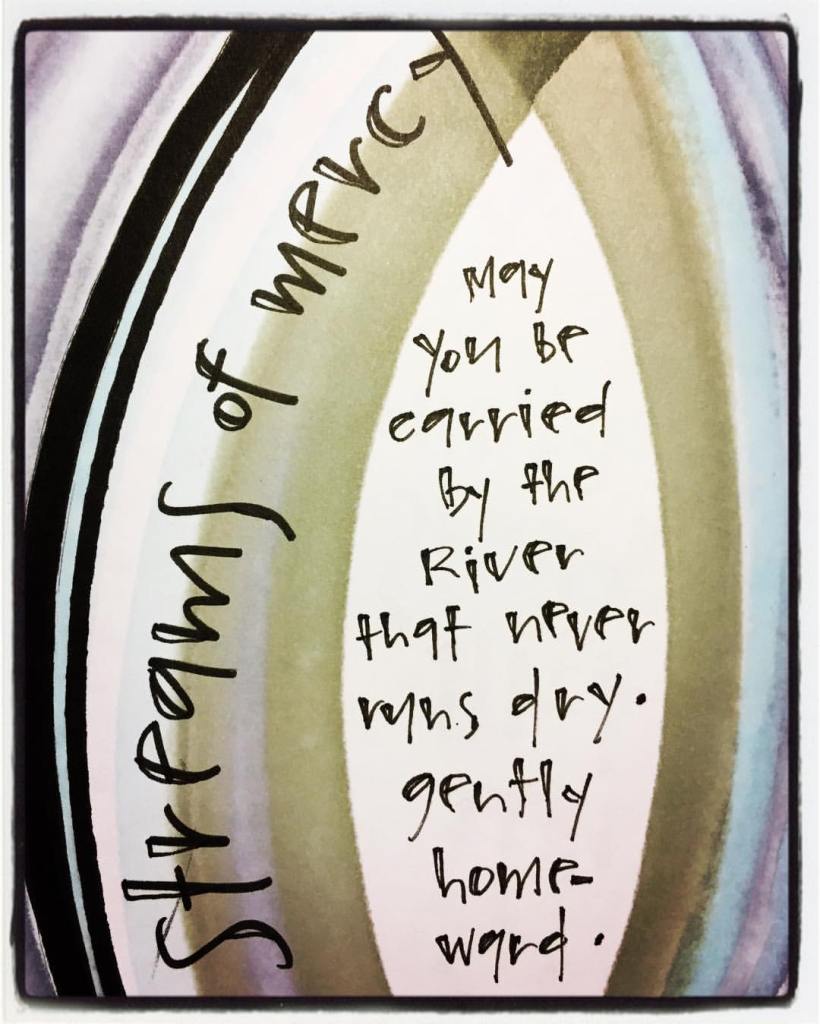 streams of mercy
May
you be
carried
by the
River
that never
runs dry.
gently
home-
ward.